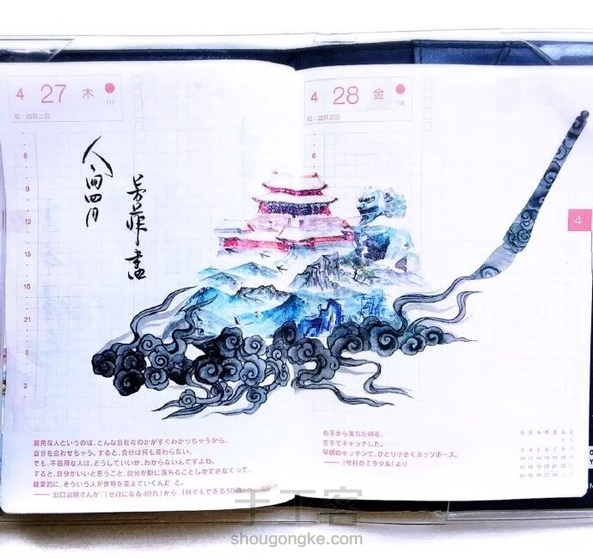 4 27 木
117
旧/四月二日
人间四月
芳菲尽
6
9
12
15
18
21
0
3
器用な人というのは、どんな会社なのかがすぐわかっちゃうから、
自分を合わせちゃう。すると、会社は何も変わらない。
でも、不器用な人は、どうしていいか、わからないんですよね。
すると、自分がいいと思うこと、自分が腑に落ちることしかできなくって、
結果的に、そういう人が世界を変えていくんだ、と。
4 28 金
118
旧/四月三日
6
4
右手から落ちた卵を、
左手でキャッチした。
早朝のキッチンで、ひとり小さくガッツポーズ。
──『今日のミラクル』より
手工客
shougongke.com